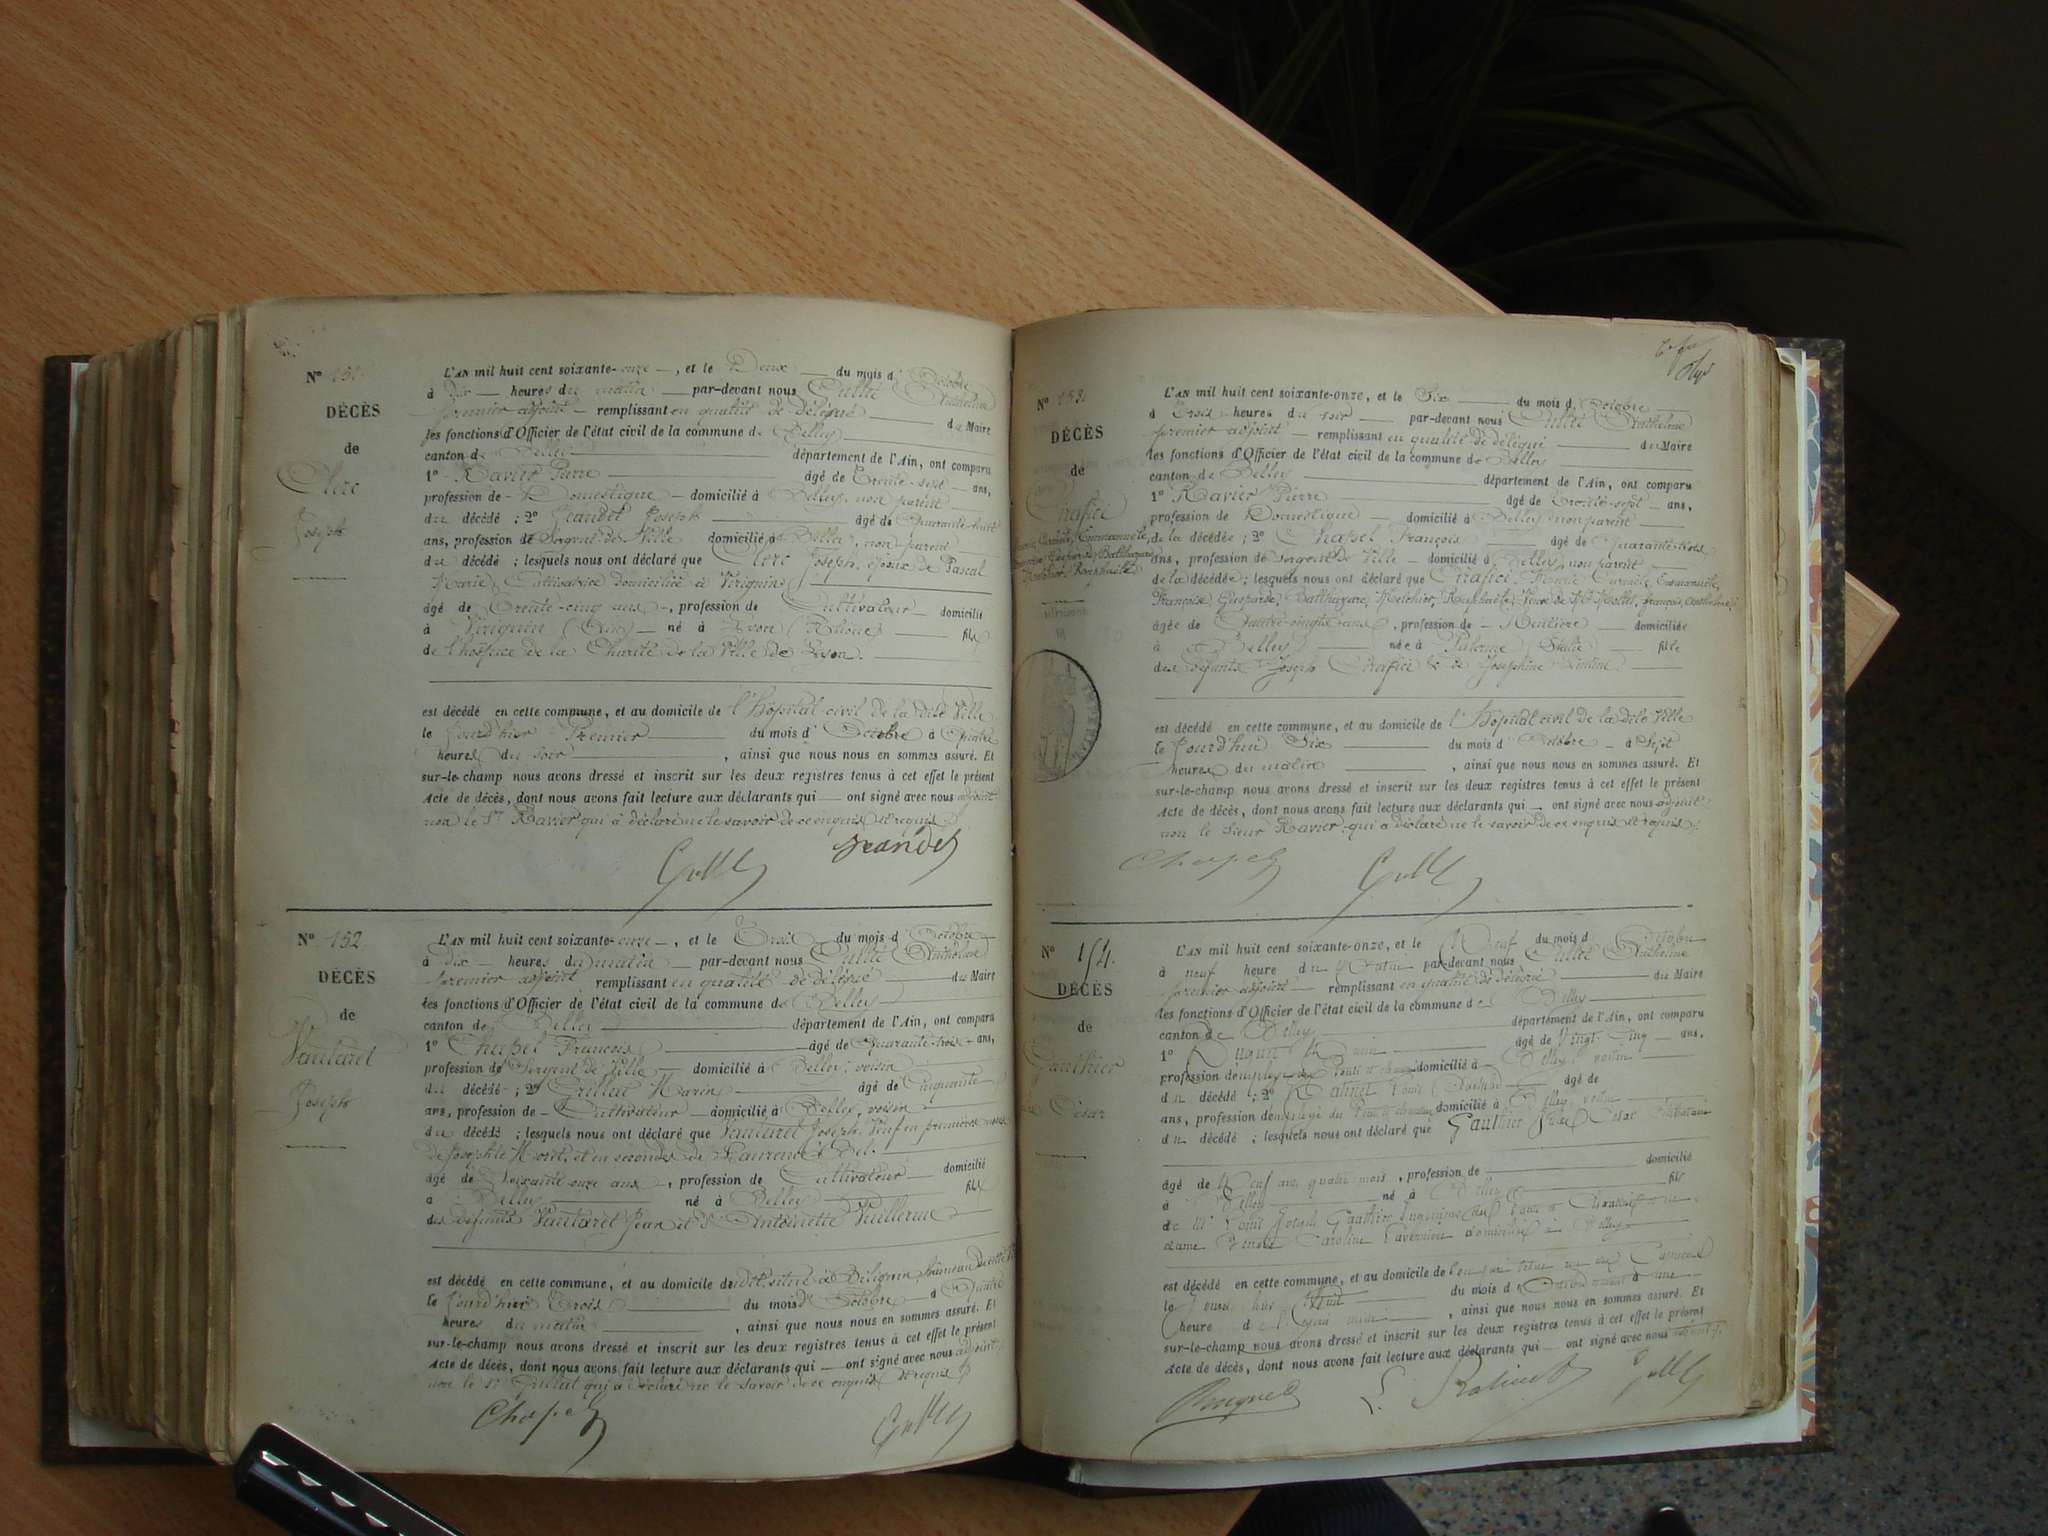 N° 151.
DÉCÈS
de
Clerc
Joseph
L'AN mil huit cent soixante-onze, et le Deux du mois d'Octobre
à Dix heures du matin par-devant nous Culbé Anthelme
premier adjoint remplissant en qualité de délégué du Maire
les fonctions d'Officier de l'état civil de la commune de Belley
canton de Belley département de l'Ain, ont comparu
1° Ravier Pierre âgé de Trente-sept ans,
profession de Domestique domicilié à Belley, non parent
du décédé ; 2° Jeandet Joseph âgé de Quarante-huit
ans, profession de Sergent de Ville domicilié à Belley, non parent
du décédé ; lesquels nous ont déclaré que Clerc Joseph, époux de Pascal
Marie, Cultivatrice domiciliée à Virignin
âgé de Trente-cinq ans, profession de Cultivateur domicilié
à Virignin (Ain) né à Lyon (Rhône) fils
de l'hospice de la Charité de la Ville de Lyon.
est décédé en cette commune, et au domicile de l'Hôpital civil de la dite Ville
le jourd'hier Premier du mois d'Octobre à Quatre
heures du soir, ainsi que nous nous en sommes assuré. Et
sur-le-champ nous avons dressé et inscrit sur les deux registres tenus à cet effet le présent
Acte de décès, dont nous avons fait lecture aux déclarants qui ont signé avec nous adjoint
non le Sr Ravier qui a déclaré ne le savoir de ce enquis et requis
Jeandet
N° 152
DÉCÈS
de
Vautaret
Joseph
L'AN mil huit cent soixante-onze, et le Trois du mois d'Octobre
à Dix heures du matin par-devant nous Culbé Anthelme
premier adjoint remplissant en qualité de délégué du Maire
les fonctions d'Officier de l'état civil de la commune de Belley
canton de Belley département de l'Ain, ont comparu
1° Chapel François âgé de Quarante-trois ans,
profession de Sergent de Ville domicilié à Belley, voisin
du décédé ; 2° Grillat Marin âgé de Cinquante
ans, profession de Cultivateur domicilié à Belley, voisin
du décédé ; lesquels nous ont déclaré que Vautaret Joseph, Veuf en premières noces
de Josephte Moret, et en secondes de Laurence
âgé de Soixante-onze ans, profession de Cultivateur domicilié
à Belley né à Belley fils
des défunts Vautaret Jean et Antoinette Vuillerme
est décédé en cette commune, et au domicile du dit, situé à Billignin hameau de cette
le jourd'hui Trois du mois d'Octobre à Quatre
heures du matin, ainsi que nous nous en sommes assuré. Et
sur-le-champ nous avons dressé et inscrit sur les deux registres tenus à cet effet le présent
Acte de décès, dont nous avons fait lecture aux déclarants qui ont signé avec nous adjoint
non le Sr Grillat qui a déclaré ne le savoir de ce enquis et requis
Chapel
N° 153.
DÉCÈS
de
Chafici
Emmanuelle,
Gasparde, Balthazare
Melchior, Raphaële
L'AN mil huit cent soixante-onze, et le Six du mois d'Octobre
à Trois heures du soir par-devant nous Culbé Anthelme
premier adjoint remplissant en qualité de délégué du Maire
les fonctions d'Officier de l'état civil de la commune de Belley
canton de Belley département de l'Ain, ont comparu
1° Ravier Pierre âgé de Trente-sept ans,
profession de Domestique domicilié à Belley, non parent
de la décédée ; 2° Chapel François âgé de Quarante-trois
ans, profession de Sergent de Ville domicilié à Belley, non parent
de la décédée ; lesquels nous ont déclaré que Chafici, Marie, Emmanuelle,
Françoise, Gasparde, Balthazare, Melchior, Raphaële, Veuve de Mr François, Anthelme
âgée de Quatre-vingts ans, profession de Rentière domiciliée
à Belley née à Palerme (Italie) fille
des défunts Joseph Chafici & de Josephine
est décédé en cette commune, et au domicile de l'Hôpital civil de la dite Ville
le jourd'hui Six du mois d'Octobre à Sept
heures du matin, ainsi que nous nous en sommes assuré. Et
sur-le-champ nous avons dressé et inscrit sur les deux registres tenus à cet effet le présent
Acte de décès, dont nous avons fait lecture aux déclarants qui ont signé avec nous adjoint
non le Sieur Ravier qui a déclaré ne le savoir de ce enquis et requis.
Chapel
N° 154.
DÉCÈS
de
Gauthier
César
L'AN mil huit cent soixante-onze, et le Neuf du mois d'Octobre
à neuf heure du Matin par-devant nous Culbé Anthelme
premier adjoint remplissant en qualité de délégué du Maire
les fonctions d'Officier de l'état civil de la commune de Belley
canton de Belley département de l'Ain, ont comparu
1° âgé de Vingt-Cinq ans,
profession d'employé des Ponts et domicilié à Belley, voisin
du décédé ; 2° Rabinet Louis âgé de
ans, profession d'employé des Ponts et domicilié à Belley, voisin
du décédé ; lesquels nous ont déclaré que Gauthier César
âgé de Neuf ans quatre mois, profession de domicilié
à Belley né à Belley fils
de Mr Louis Joseph Gauthier Ingénieur des Ponts et Chaussées
dame Caroline domiciliés à Belley
est décédé en cette commune, et au domicile de
le jourd'hier Huit du mois d'Octobre à une
heure de, ainsi que nous nous en sommes assuré. Et
sur-le-champ nous avons dressé et inscrit sur les deux registres tenus à cet effet le présent
Acte de décès, dont nous avons fait lecture aux déclarants qui ont signé avec nous adjoint.
L. Rabinet